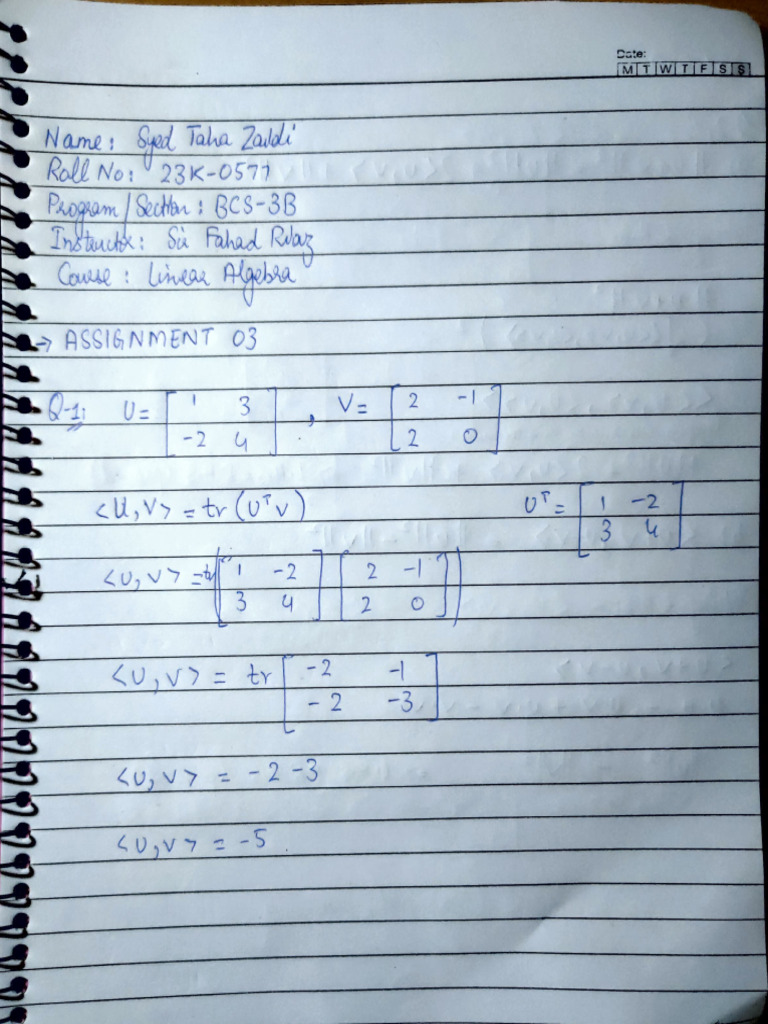 Date:
M T W T F S S
Name: Syed Taha Zaidi
Roll No: 23K-0577
Program/Section: BCS-3B
Instructor: Sir Fahad Riaz
Course: Linear Algebra
→ ASSIGNMENT 03
Q-1: U = [ 1 3 , V = [ 2 -1
-2 4 ] 2 0 ]
<U,V> = tr(UᵀV) Uᵀ = [ 1 -2
3 4 ]
<U,V> = tr([ 1 -2 ] [ 2 -1 ])
3 4 2 0
<U,V> = tr [ -2 -1
-2 -3 ]
<U,V> = -2 -3
<U,V> = -5.